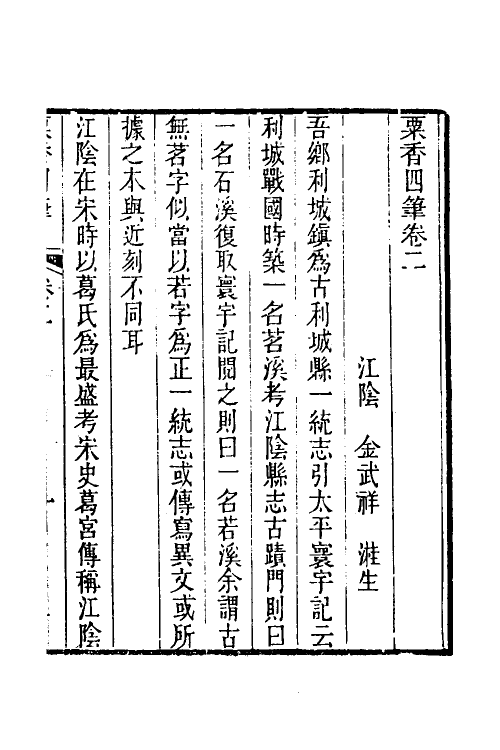 粟香四筆卷二
江陰　金武祥　溎生
吾鄉利城鎮爲古利城縣一統志引太平寰宇記云
利城戰國時築一名茗溪考江陰縣志古蹟門則曰
一名石溪復取寰宇記閱之則曰一名若溪余謂古
無茗字似當以若字爲正一統志或傳寫異文或所
據之本與近刻不同耳
江陰在宋時以葛氏爲最盛考宋史葛宮傳稱江陰